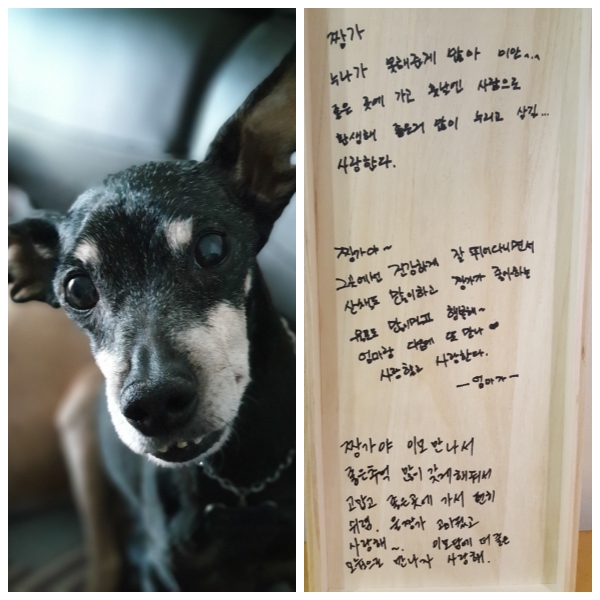 짱가
누나가 못해준게 많아 미안...
좋은 곳에 가고 훗날엔 사람으로
환생해 좋은거 많이 누리고 살길...
사랑한다.
짱가야~
그곳에선 건강하게 잘 뛰어다니면서
산책도 많이하고 짱가가 좋아하는
많이먹고 행복해~
엄마랑 다음에 또 만나♥
사랑하고 사랑한다.
—엄마가—
짱가야 이모 만나서
좋은추억 많이 갖게해줘서
고맙고 좋은곳에 가서 편히
쉬렴. 짱가 고마웠고
사랑해~. 이모담에 더 좋은
모습으로 만나자 사랑해.